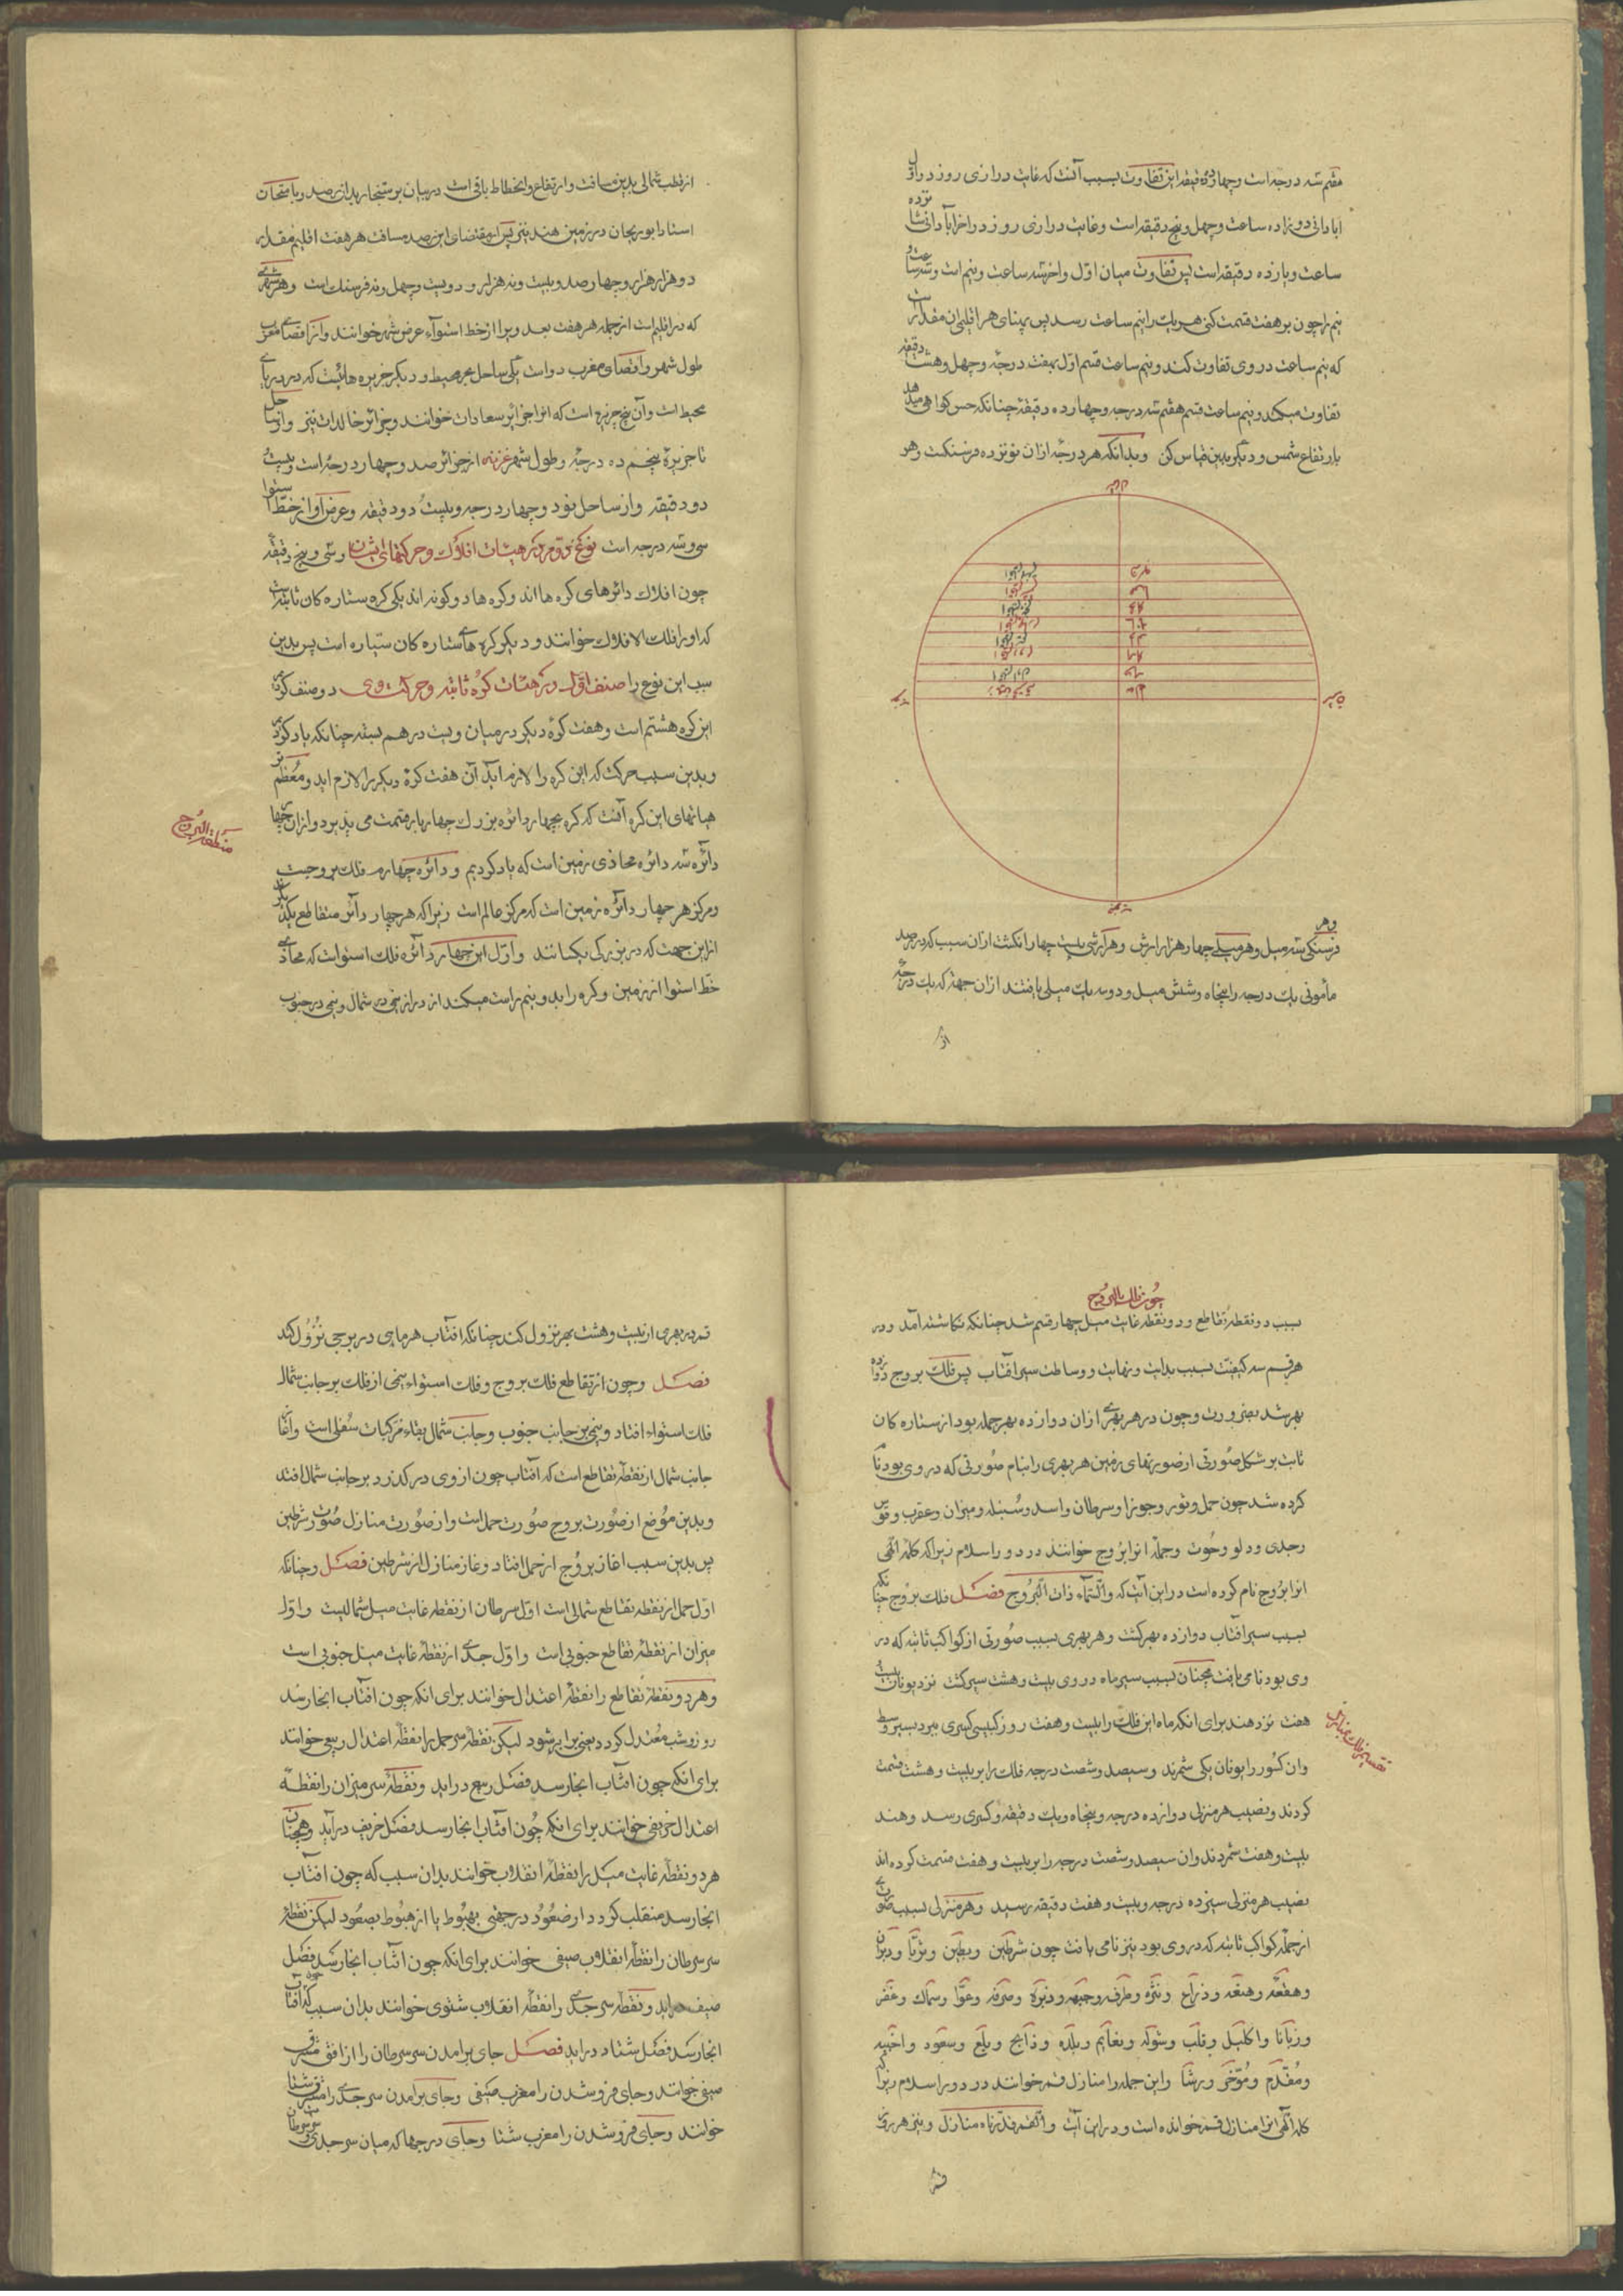 هفتم سه درجه است و چهارده دقیقه این تفاوت بسبب آنست که غایت درازی روز در اول
ابادانی دوازده ساعت و چهل و پنج دقیقه است و غایت درازی روز در اخر آبادانی شانزده
ساعت و یازده دقیقه است پس تفاوت میان اول و اخر سه ساعت و نیم است و سه ساعت و
نیم را چون بر هفت قسمت کنی هر یک را نیم ساعت رسد پس پهنای هر اقلیم ان مقدار است
که نیم ساعت در وی تفاوت کند و نیم ساعت قسم اول بهفت درجه و چهل و هشت دقیقه
تفاوت میکند و نیم ساعت قسم هفتم سه درجه و چهارده دقیقه چنانکه حس کواهی میدهد
بارتفاع شمس و دیگر بدین قیاس کن وبدانکه هر درجه ازان نوزده فرسنکست و هر
فرسنکی سه میل و هر میلی چهار هزار ارش و هر ارشی بیست چهار انکشت ازان سبب که در رصد
مأمونی یک درجه را پنجاه و شش میل و دو سه یک میلی یافتند ازان جهة که یک درجه
از قطب شمالی بدین مسافت و ارتفاع و انحطاط باقی است در بیابان بر سنجار بدان رصد و بامتحان
استاد ابوریحان در زمین هند نیز پس از مقتضای این رصد مسافت هر هفت اقلیم مقدار
دو هزار هزار و چهار صد و بیست و نه هزار و دویست و چهل و نه فرسنک است و هر شهری
که در اقلیم است از جمله هر هفت بعد ویرا از خط استواء عرض شهر خوانند و از اقصای مغرب
طول شهر و اقصای مغرب دو است یکی ساحل بحر محیط و دیگر جزیره هائیست که در دریای
محیط است و آن پنج جزیره است که انرا جزائر سعادات خوانند و جزائر خالدات نیز و از ساحل
تا جزیرۀ پنجم ده درجه و طول شهر غزنه از جزائر صد و چهار درجه است و بیست
دو دقیقه و از ساحل نود و چهار درجه و بیست دو دقیقه و عرض او از خط استوا
سی و سه درجه است نوع دوم در هیئات افلاک و حرکتهای ایشان و سی و پنج دقیقه
چون افلاک دائرهای کره ها اند و کره ها دو کونه اند یکی کره ستاره کان ثابته است
که او را فلک الافلاک خوانند و دیگر کره هاء ستاره کان سیاره است پس بدین
سبب این نوع را صنف اول در هیئات کره ثابته و حرکت وی دو صنف کردیم
این کره هشتم است و هفت کره دیگر در میان ویست در هم بسته چنانکه یاد کردیم
و بدین سبب حرکت که این کره را لازم آید آن هفت کره دیگر را لازم اید و معظم تر
هیاتهای این کره آنست که کره بچهار دائره بزرک چهار بار قسمت می پذیرد و ازان چهار
دائره سه دائره محاذی زمین است که یاد کردیم و دائره چهارم فلک بروجست
منطقة البروج
و مرکز هر چهار دائره زمین است که مرکز عالم است زیرا که هر چهار دائر متقاطع یکدیگر
ازین جهت که در بزرکی یکسانند و اول این چهار دائره فلک استواست که محاذی
خط استوا از زمین و کره را بدو نیم راست میکند از دراز نیمی در شمال و نیمی در جنوب
چون فلک البروج
بسبب دو نقطه تقاطع و دو نقطه غایت میل چهار قسم شد چنانکه نکاشته آمد و در
هر قسم سه کیفیت بسبب بدایت و نهایت و وساطت سیر آفتاب پس فلک بروج دوازده
بهر شد بضرورت و چون در هر بهری ازان دوازده بهر جمله بود از ستاره کان
ثابت بر شکل صورتی از صورتهای زمین هر بهری را بنام صورتی که در وی بود نام
کرده شد چون حمل و ثور و جوزا و سرطان و اسد و سنبله و میزان و عقرب و قوس
و جدی و دلو و حوت و جمله انرا بروج خوانند در دور اسلام زیرا که کلام الهی
انرا بروج نام کرده است در این آیت که والسماء ذات البروج فصل فلک بروج چنانکه
بسبب سیر افتاب دوازده بهر کشت و هر بهری بسبب صورتی از کواکب ثابته که در
وی بود نامی یافت همچنان بسبب سیر ماه در وی بیست و هشت سیر کشت نزد یونان بیست
هفت نزد هند برای انکه ماه این فلک را بیست و هفت روز کسری میبرد بسیر وسط
وان کسور را یونان یکی شمرند و سیصد و شصت درجه فلک را بر بیست و هشت قسمت
کردند و نصیب هر منزلی دوازده درجه و پنجاه و یک دقیقه و کسری رسد و هند
بیست و هفت شمردند وان سیصد و شصت درجه را بر بیست و هفت قسمت کرده اند
نصیب هر منزلی سیزده درجه و بیست و هفت دقیقه رسید و هر منزلی بسبب صورتی
از جمله کواکب ثابته که در وی بود نیز نامی یافت چون شرطین و بطین و ثریا و دبران
و هقعه و هنعه و ذراع و نثره و طرف و جبهه و زبره و صرفه و عوا و سماک و غفر
و زبانا و اکلیل و قلب و شوله و نعایم و بلده و ذابح و بلع و سعود و اخبیه
و مقدم و مؤخر و رشا و این جمله را منازل قمر خوانند در دور اسلام زیرا که
کلام الهی انرا منازل قمر خوانده است و در این آیت والقمر قدرناه منازل و نیز هر روز
قمر در بهری از بیست و هشت بهر نزول کند چنانکه افتاب هر ماهی در برجی نزول کند
فصل و چون از تقاطع فلک بروج و فلک استواء نیمی از فلک بر جانب شمال
فلک استواء افتاد و نیمی بر جانب جنوب و جانب شمال بقاء ترکیبات سفلی است و آغاز
جانب شمال از نقطه تقاطع است که آفتاب چون از وی در کذرد بر جانب شمال افتد
و بدین موضع از صورت بروج صورت حمل است و از صورت منازل صورت شرطین
پس بدین سبب اغاز بروج از حمل افتاد و غاز منازل از شرطین فصل و چنانکه
اول حمل از نقطه تقاطع شمالی است اول سرطان از نقطه غایت میل شمالیست و اول
میزان از نقطۀ تقاطع جنوبی است و اول جدی از نقطۀ غایت میل جنوبی است
و هر دو نقطۀ تقاطع را نقطۀ اعتدال خوانند برای انکه چون افتاب انجا رسد
روز و شب معتدل کردد یعنی برابر شود لیکن نقطه سر حمل را نقطۀ اعتدال ربیعی خوانند
برای انکه چون افتاب انجا رسد فصل ربیع دراید و نقطۀ سر میزان را نقطۀ
اعتدال خریفی خوانند برای انکه چون افتاب انجا رسد فصل خریف درآید و همچنان
هر دو نقطۀ غایت میل را نقطۀ انقلاب خوانند بدان سبب که چون افتاب
انجا رسد منقلب کردد از صعود در جهتی بهبوط یا از هبوط بصعود لیکن نقطۀ
سر سرطان را نقطۀ انقلاب صیفی خوانند برای انکه چون افتاب انجا رسد فصل
صیف دراید و نقطه سر جدی را نقطۀ انقلاب شتوی خوانند بدان سبب که چون افتاب
انجا رسد فصل شتاء دراید فصل جای برامدن سر سرطان را از افق مشرق
صیفی خوانند و جای فرو شدن را مغرب صیفی و جای برامدن سر جدی را مشرق شتا
خوانند و جای فرو شدن را مغرب شتا و جای درجها که میان سر جدی و سرطان